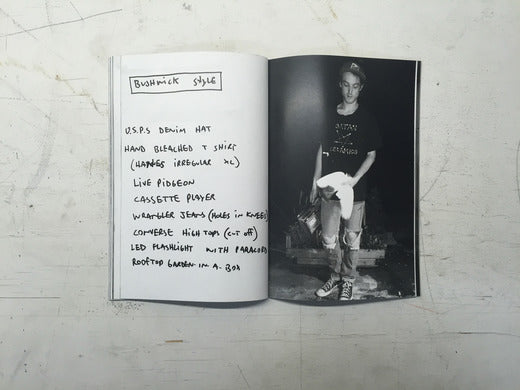 BUSHWICK STYLE
U.S.P.S DENIM HAT
HAND BLEACHED T SHIRT
(HANES IRREGULAR XL)
LIVE PIDGEON
CASSETTE PLAYER
WRANGLER JEANS (HOLES IN KNEES)
CONVERSE HIGH TOPS (CUT OFF)
LED FLASHLIGHT WITH PARACORD
ROOFTOP GARDEN IN A BOX
SATAN
CERAMICS